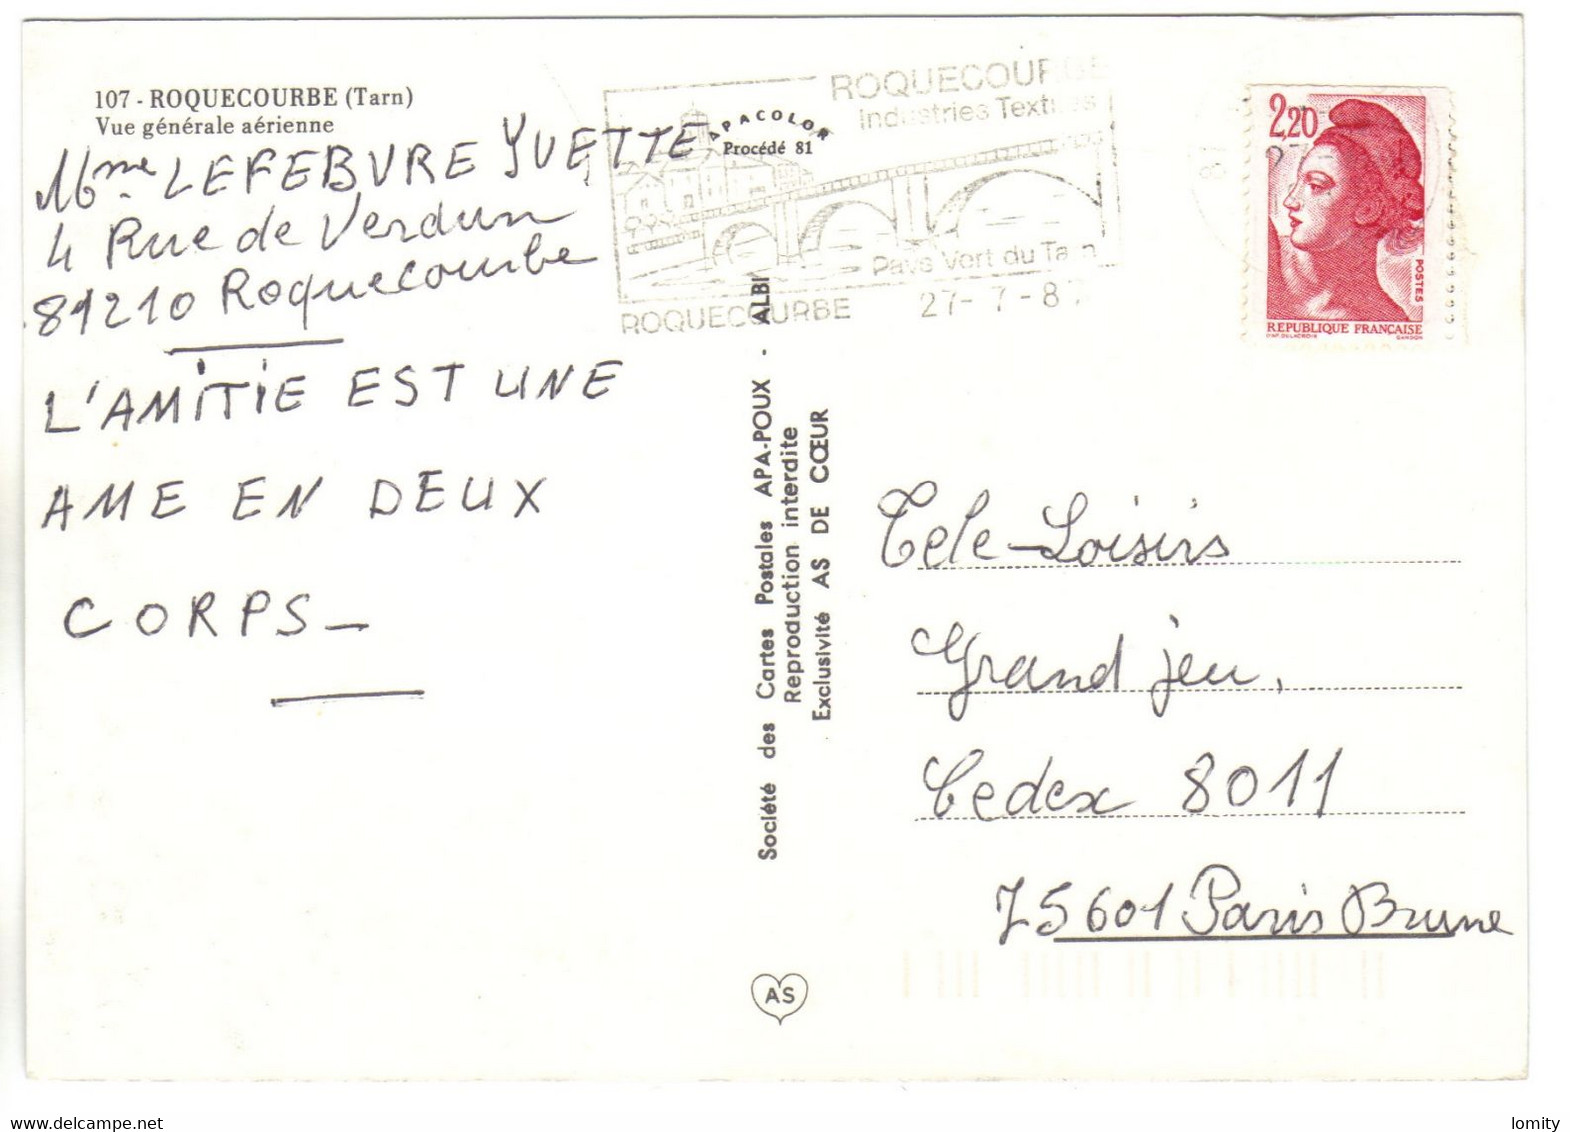 107 - ROQUECOURBE (Tarn)
Vue générale aérienne
Mme LEFEBVRE YVETTE
4 Rue de Verdun
81210 Roquecourbe
L'AMITIE EST UNE
AME EN DEUX
CORPS_
APACOLOR
Procédé 81
ROQUECOURBE
Industries Textiles
Pays Vert du Tarn
ROQUECOURBE 27-7-87
2,20
POSTES
REPUBLIQUE FRANÇAISE
D'AP. DELACROIX GANDON
Société des Cartes Postales APA-POUX - ALBI
Reproduction interdite
Exclusivité AS DE CŒUR
Tele-Loisirs
Grand jeu,
Cedex 8011
75601 Paris Brune
AS
lomity